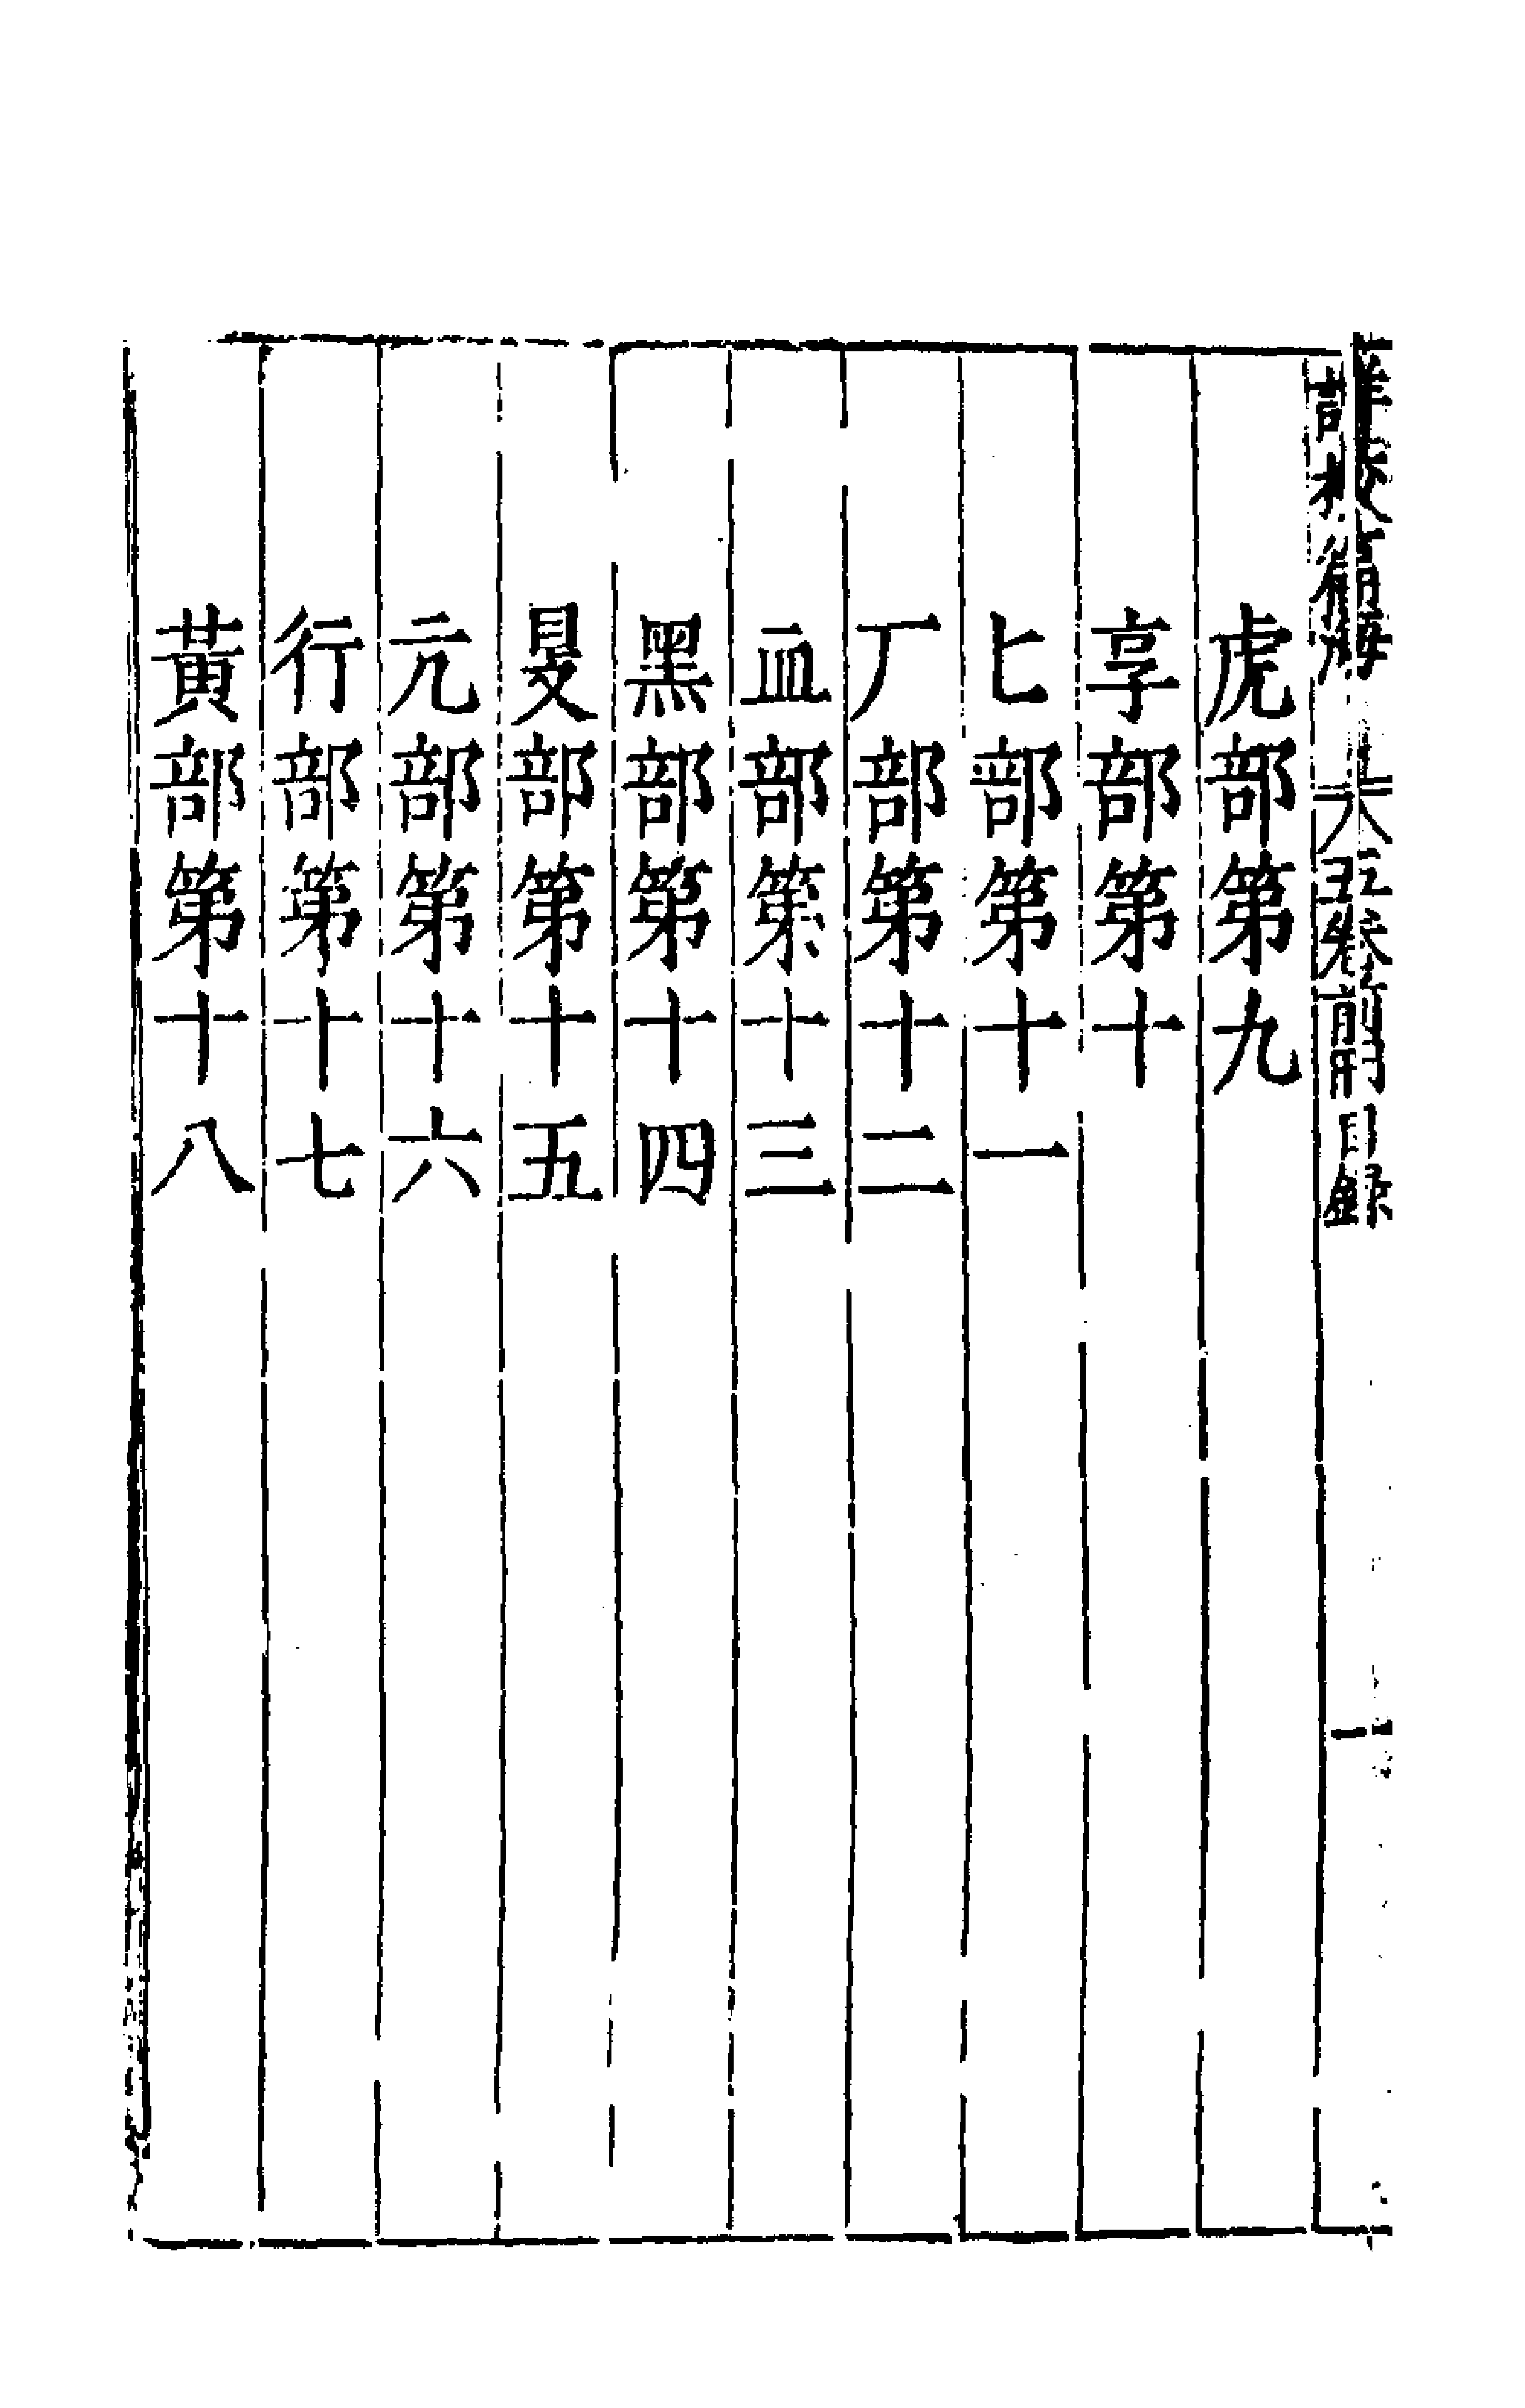 詳校篇海 五卷前 目錄 一
虎部第九
享部第十
𠤎部第十一
厂部第十二
血部第十三
黑部第十四
𥄎部第十五
亢部第十六
行部第十七
黃部第十八